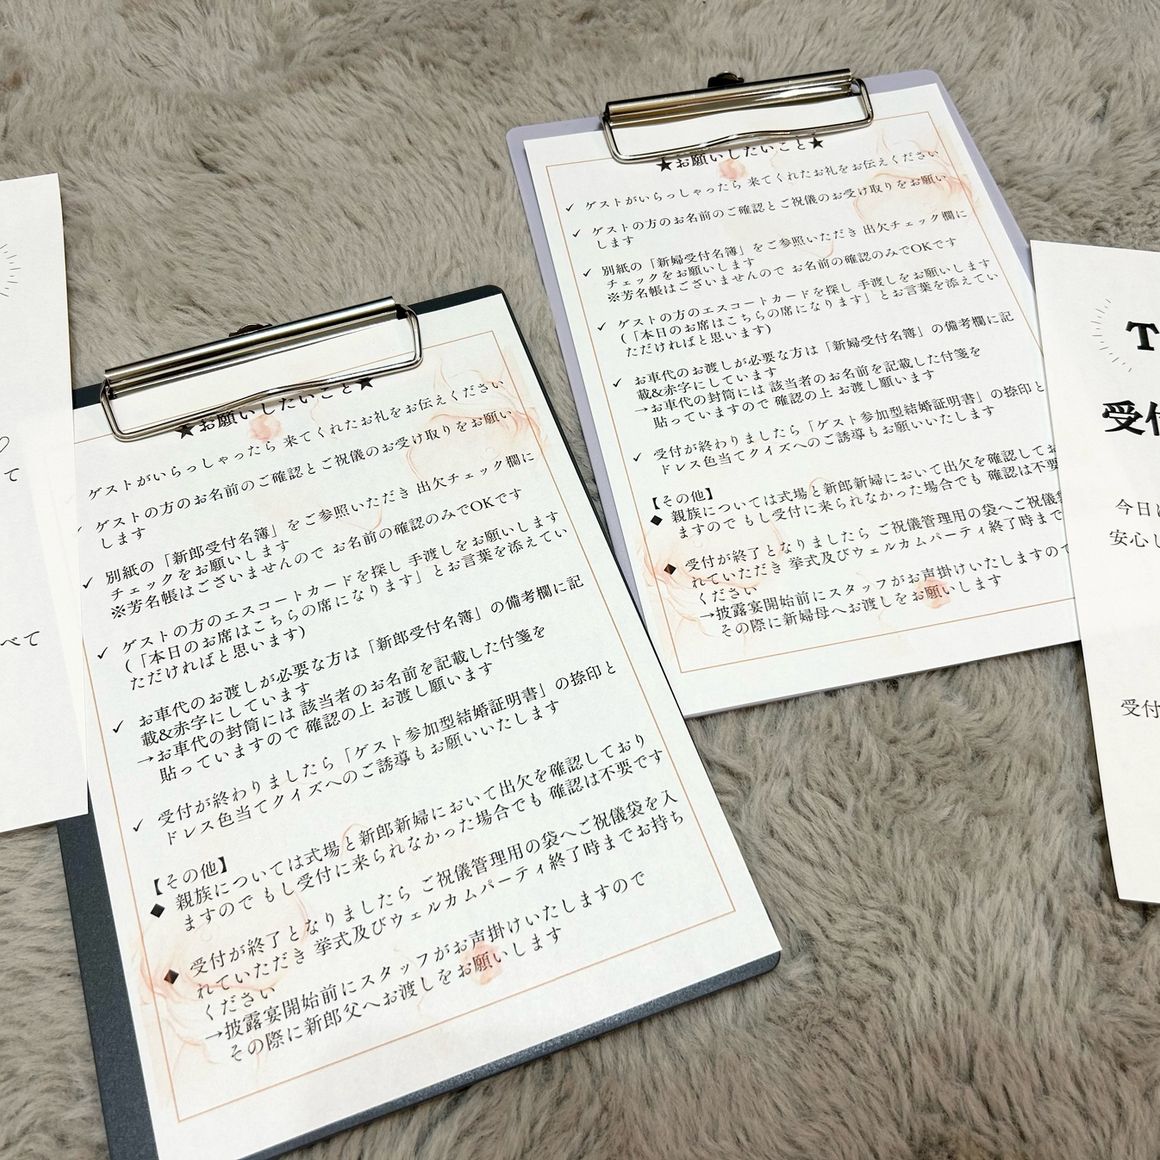 て
べて
★お願いしたいこと★
ゲストがいらっしゃったら 来てくれたお礼をお伝えください
ゲストの方のお名前のご確認とご祝儀のお受け取りをお願い
します
✓ 別紙の「新郎受付名簿」をご参照いただき 出欠チェック欄に
チェックをお願いします
※芳名帳はございませんので お名前の確認のみでOKです
✓ ゲストの方のエスコートカードを探し 手渡しをお願いします
(「本日のお席はこちらの席になります」とお言葉を添えてい
ただければと思います)
✓ お車代のお渡しが必要な方は「新郎受付名簿」の備考欄に記
載&赤字にしています
→お車代の封筒には 該当者のお名前を記載した付箋を
貼っていますので 確認の上 お渡し願います
✓ 受付が終わりましたら「ゲスト参加型結婚証明書」の捺印と
ドレス色当てクイズへのご誘導もお願いいたします
【その他】
◆ 親族については式場と新郎新婦において出欠を確認しており
ますので もし受付に来られなかった場合でも 確認は不要です
◆ 受付が終了となりましたら ご祝儀管理用の袋へご祝儀袋を入
れていただき 挙式及びウェルカムパーティ終了時までお持ち
ください
→披露宴開始前にスタッフがお声掛けいたしますので
その際に新郎父へお渡しをお願いします
★お願いしたいこと★
✓ ゲストがいらっしゃったら 来てくれたお礼をお伝えください
✓ ゲストの方のお名前のご確認とご祝儀のお受け取りをお願い
します
✓ 別紙の「新婦受付名簿」をご参照いただき 出欠チェック欄に
チェックをお願いします
※芳名帳はございませんので お名前の確認のみでOKです
✓ ゲストの方のエスコートカードを探し 手渡しをお願いします
(「本日のお席はこちらの席になります」とお言葉を添えてい
ただければと思います)
✓ お車代のお渡しが必要な方は「新婦受付名簿」の備考欄に記
載&赤字にしています
→お車代の封筒には 該当者のお名前を記載した付箋を
貼っていますので 確認の上 お渡し願います
✓ 受付が終わりましたら「ゲスト参加型結婚証明書」の捺印と
ドレス色当てクイズへのご誘導もお願いいたします
【その他】
◆ 親族については式場と新郎新婦において出欠を確認してお
ますので もし受付に来られなかった場合でも 確認は不要
◆ 受付が終了となりましたら ご祝儀管理用の袋へご祝儀
れていただき 挙式及びウェルカムパーティ終了時まで
ください
→披露宴開始前にスタッフがお声掛けいたしますので
その際に新婦母へお渡しをお願いします
T
受付
今日
安心し
受付